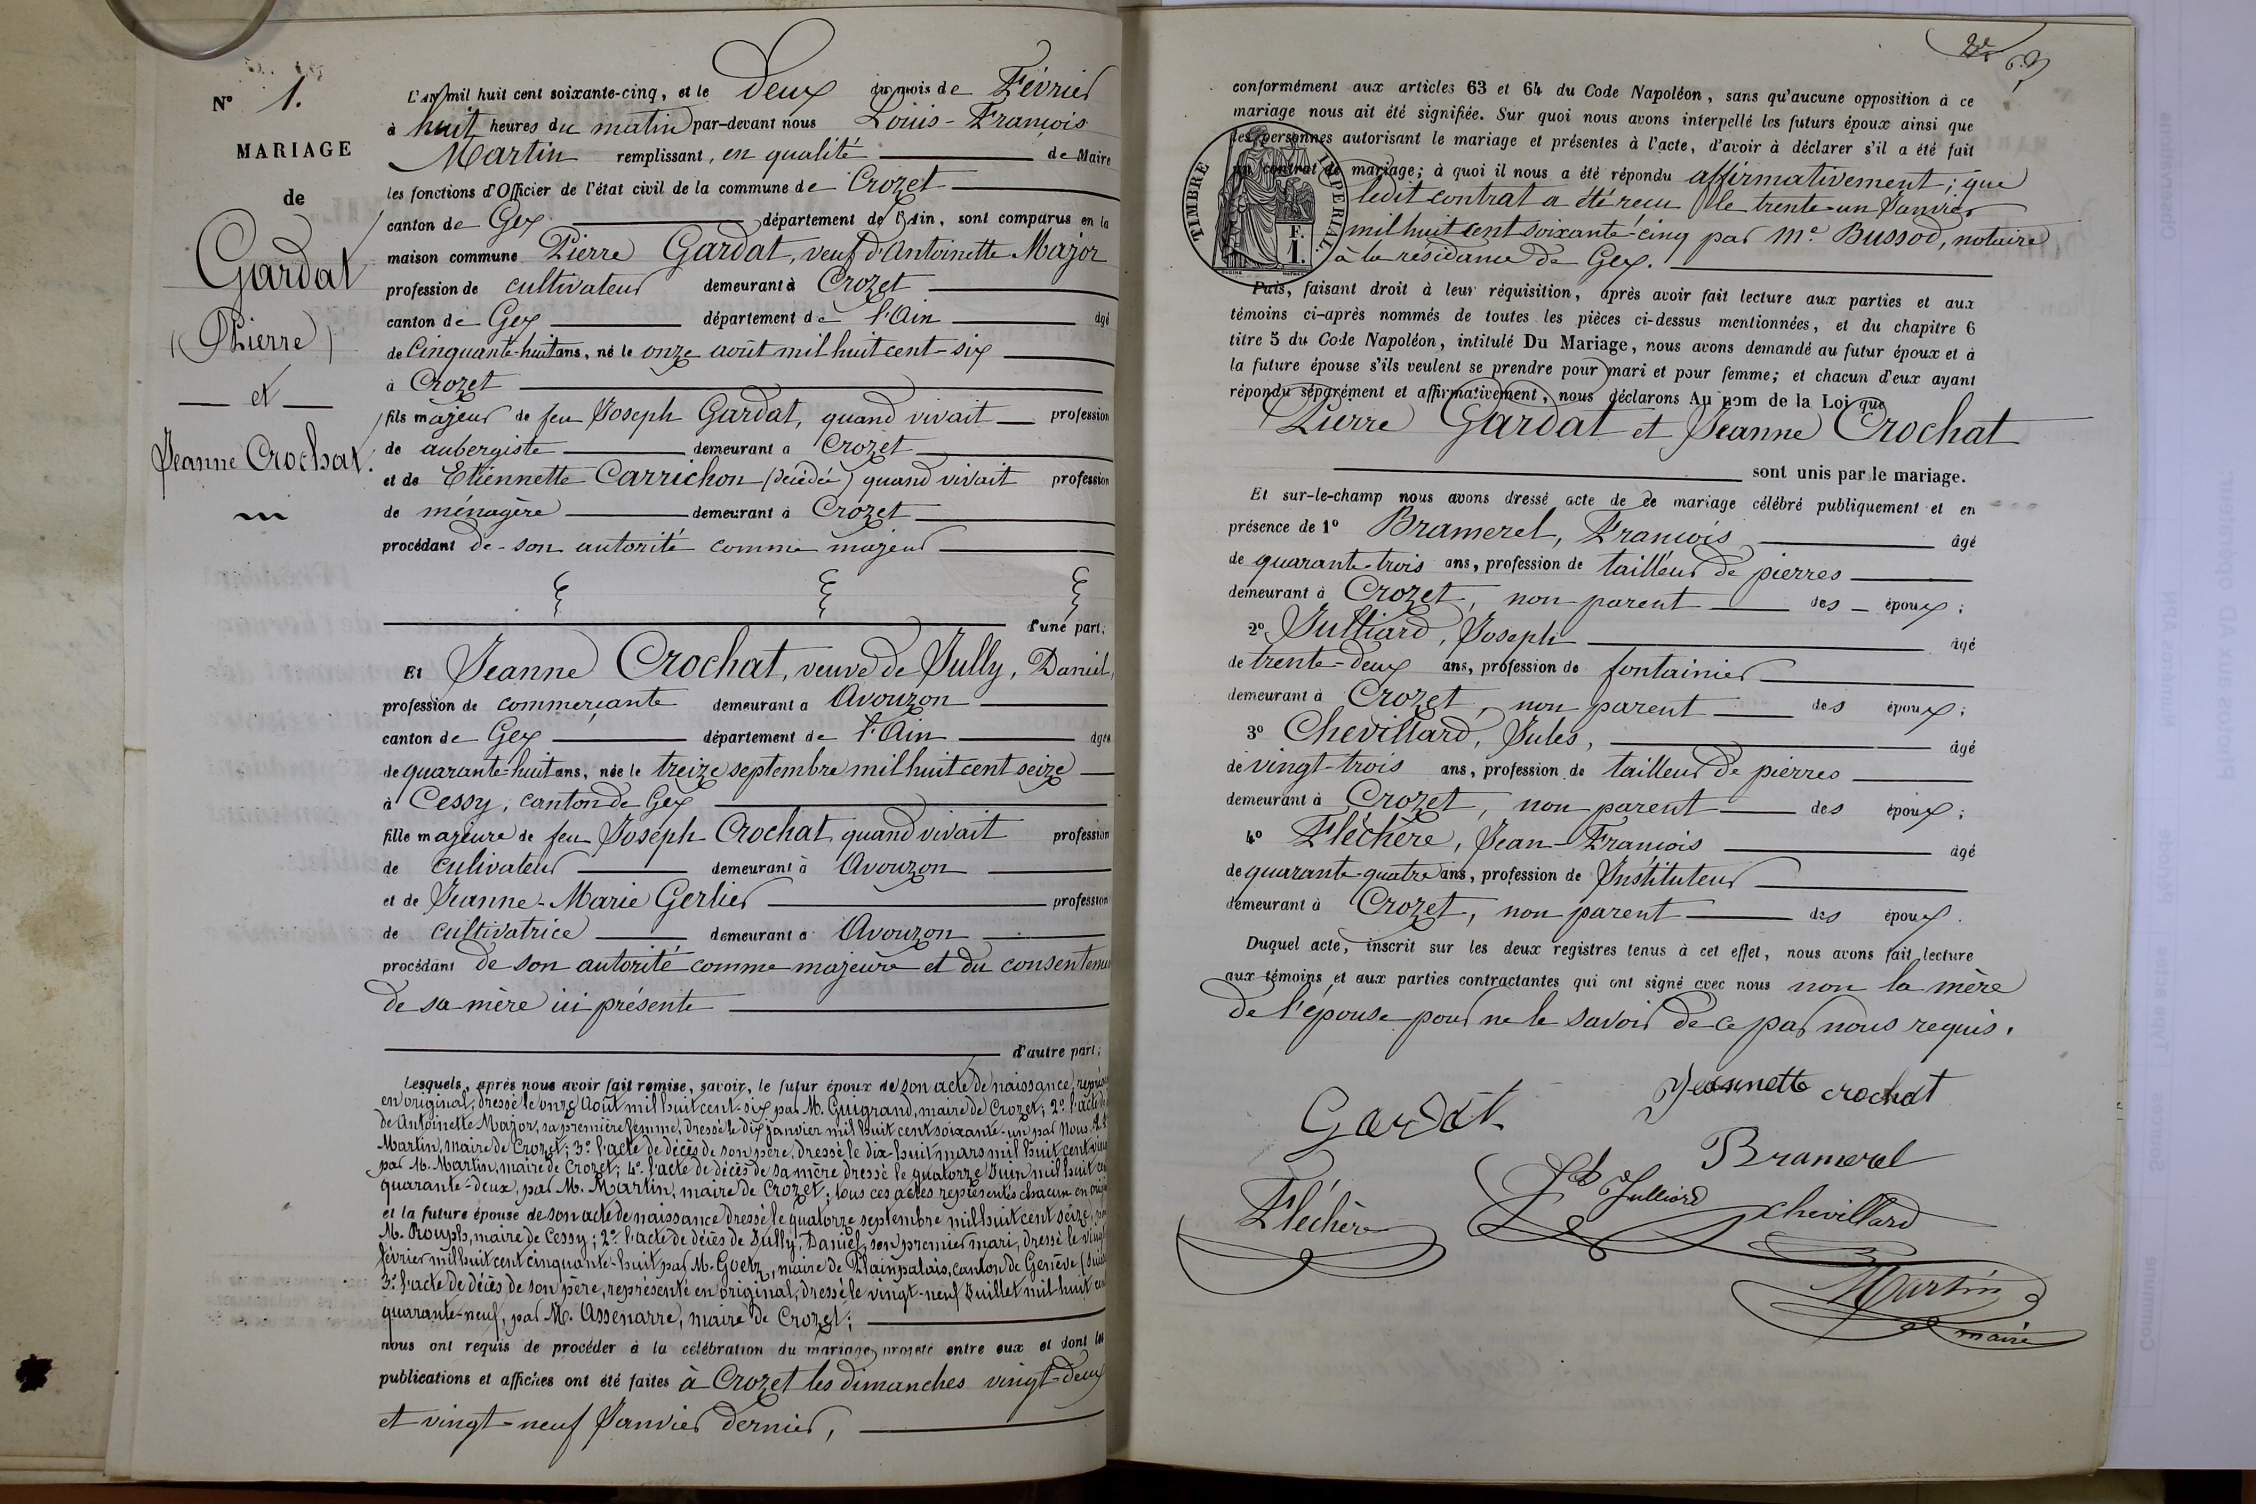 N° 1.
MARIAGE
de
Gardat
(Pierre)
et
Jeanne Crochat.
L'an mil huit cent soixante-cinq, et le deux du mois de Février
à huit heures du matin par-devant nous Louis-François
Martin remplissant, en qualité de Maire
les fonctions d'Officier de l'état civil de la commune de Crozet
canton de Gex département de l'Ain, sont comparus en la
maison commune Pierre Gardat, veuf d'Antoinette Major
profession de cultivateur demeurant à Crozet
canton de Gex département de l'Ain âgé
de Cinquante-huit ans, né le onze août mil huit cent-six
à Crozet
fils majeur de feu Joseph Gardat, quand vivait profession
de aubergiste demeurant à Crozet
et de Etiennette Carrichon (décédée) quand vivait profession
de ménagère demeurant à Crozet
procédant de son autorité comme majeur
d'une part;
Et Jeanne Crochat, veuve de Jully, Daniel,
profession de commerçante demeurant à Avouzon
canton de Gex département de l'Ain âgée
de quarante-huit ans, née le treize septembre mil huit cent seize
à Cessy, canton de Gex
fille majeure de feu Joseph Crochat quand vivait profession
de culivateur demeurant à Avouzon
et de Jeanne-Marie Gerlier profession
de cultivatrice demeurant à Avouzon
procédant de son autorité comme majeure et du consentement
de sa mère ici présente
d'autre part;
Lesquels, après nous avoir fait remise, savoir, le futur époux de son acte de naissance,
en original, dressé le onze Août mil huit cent-six par M. Guigrand, maire de Crozet; 2° l'acte
de Antoinette Major, sa première femme, dressé le dix janvier mil huit cent soixante-un par Nous
Martin, maire de Crozet; 3° l'acte de décès de son père, dressé le dix-huit mars mil huit cent
par M. Martin, maire de Crozet; 4° l'acte de décès de sa mère dressé le quatorze Juin mil huit
quarante-deux, par M. Martin, maire de Crozet; tous ces actes représentés chacun en
et la future épouse de son acte de naissance dressé le quatorze septembre mil huit cent seize,
M. Rouph, maire de Cessy; 2° l'acte de décès de Jully, Daniel, son premier mari, dressé le
février mil huit cent cinquante-huit par M. Goetz, maire de Plainpalais, canton de Genève
3° l'acte de décès de son père, représenté en original, dressé le vingt-neuf Juillet mil huit
quarante-neuf, par M. Assenarre, maire de Crozet;
nous ont requis de procéder à la célébration du mariage projeté entre eux et dont les
publications et affiches ont été faites à Crozet les dimanches vingt-deux
et vingt-neuf Janvier dernier,
conformément aux articles 63 et 64 du Code Napoléon, sans qu'aucune opposition à ce
mariage nous ait été signifiée. Sur quoi nous avons interpellé les futurs époux ainsi que
les personnes autorisant le mariage et présentes à l'acte, d'avoir à déclarer s'il a été fait
un contrat de mariage; à quoi il nous a été répondu affirmativement; que
ledit contrat a été recu le trente-un Janvier
mil huit cent soixante-cinq par Me Bussod, notaire
à la résidence de Gex.
TIMBRE IMPERIAL
F.
1.
Puis, faisant droit à leur réquisition, après avoir fait lecture aux parties et aux
témoins ci-après nommés de toutes les pièces ci-dessus mentionnées, et du chapitre 6
titre 5 du Code Napoléon, intitulé Du Mariage, nous avons demandé au futur époux et à
la future épouse s'ils veulent se prendre pour mari et pour femme; et chacun d'eux ayant
répondu séparément et affirmativement, nous déclarons Au nom de la Loi que
Pierre Gardat et Jeanne Crochat
sont unis par le mariage.
Et sur-le-champ nous avons dressé acte de ce mariage célébré publiquement et en
présence de 1° Bramerel, François âgé
de quarante-trois ans, profession de tailleur de pierres
demeurant à Crozet, non parent des époux;
2° Julliard, Joseph âgé
de trente-deux ans, profession de fontainier
demeurant à Crozet, non parent des époux;
3° Chevillard, Jules, âgé
de vingt-trois ans, profession de tailleur de pierres
demeurant à Crozet, non parent des époux;
4° Fléchère, Jean-François âgé
de quarante-quatre ans, profession de Instituteur
demeurant à Crozet, non parent des époux.
Duquel acte, inscrit sur les deux registres tenus à cet effet, nous avons fait lecture
aux témoins et aux parties contractantes qui ont signé avec nous non la mère
de l'épouse pour ne le savoir de ce par nous requis.
Jeannette crochat
Gardat
Bramerel
Fléchère
Jh Julliard
chevillard
Martin
maire